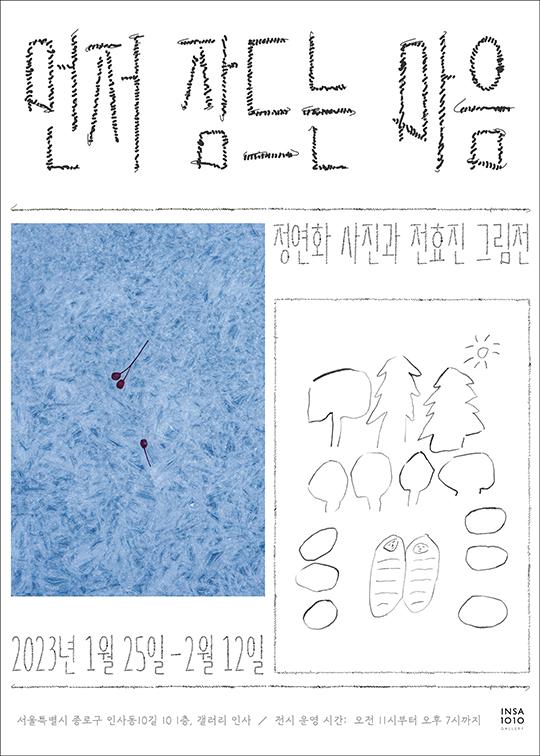 먼저 잠드는 마음
정연화 사진과 전효진 그림전
2023년 1월 25일 -2월 12일
서울특별시 종로구 인사동10길 10 1층, 갤러리 인사 / 전시 운영 시간: 오전 11시부터 오후 7시까지
INSA
1010
GALLERY